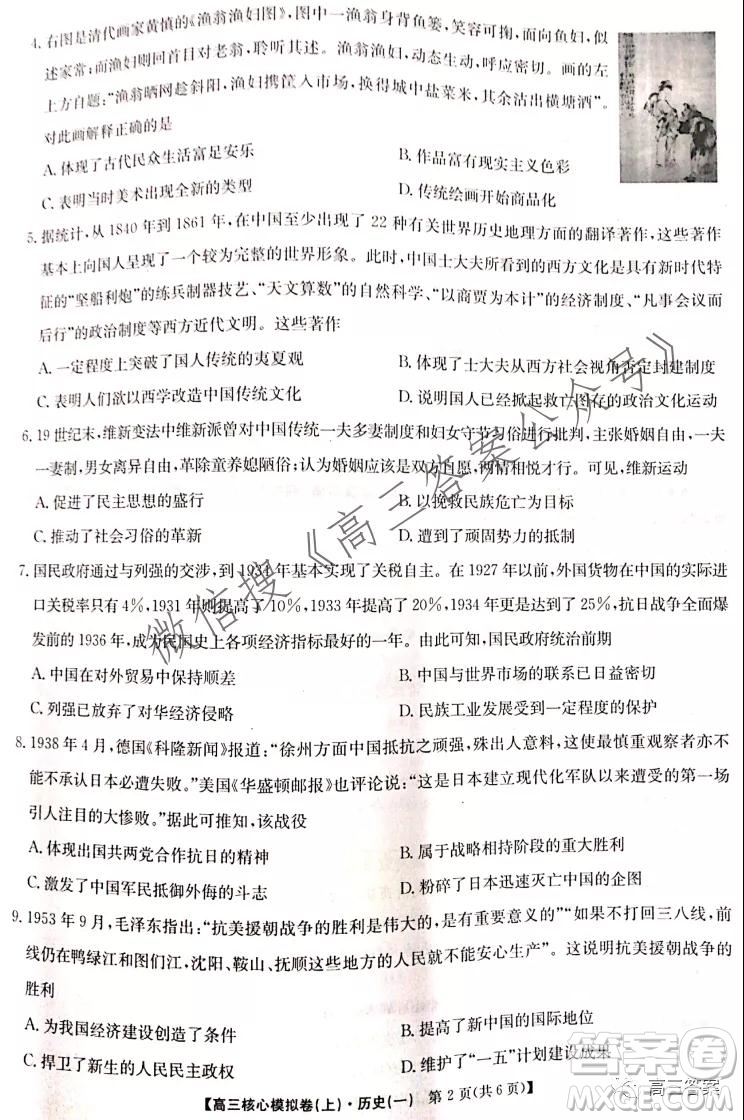 4. 右图是清代画家黄慎的《渔翁渔妇图》,图中一渔翁身背鱼篓,笑容可掬,面向鱼妇,似
述家常;而渔妇则回首目对老翁,聆听其述。渔翁渔妇,动态生动,呼应密切。画的左
上方自题:“渔翁晒网趁斜阳,渔妇携筐入市场,换得城中盐菜米,其余沽出横塘酒”。
对此画解释正确的是
A. 体现了古代民众生活富足安乐 B. 作品富有现实主义色彩
C. 表明当时美术出现全新的类型 D. 传统绘画开始商品化
5. 据统计,从 1840 年到 1861 年,在中国至少出现了 22 种有关世界历史地理方面的翻译著作,
基本上向国人呈现了一个较为完整的世界形象。此时,中国士大夫所看到的西方文化是具有特
征的“坚船利炮”的练兵制器技艺、“天文算数”的自然科学、“以商贾为本计”的经济制度、“凡事会议而
后行”的政治制度等西方近代文明。这些著作
A. 一定程度上突破了国人传统的夷夏观 B. 体现了士大夫从西方社会视角否定封建制度
C. 表明人们欲以西学改造中国传统文化 D. 说明国人已经掀起救亡图存的政治文化运动
6. 19 世纪末,维新变法中维新派曾对中国传统一夫多妻制度和妇女守节习俗进行批判,主张婚姻自由,一夫
一妻制,男女离异自由,革除童养媳陋俗;认为婚姻应该是双方自愿,两情相悦才可。可见,维新运动
A. 促进了民主思想的盛行 B. 以挽救民族危亡为目标
C. 推动了社会习俗的革新 D. 遭到了顽固势力的抵制
7. 国民政府通过与列强的交涉,到 1934 年基本实现了关税自主。在 1927 年以前,外国货物在中国的实际进
口关税率只有 4%,1931 年则提高了 10%,1933 年提高了 20%,1934 年更达到了 25%,抗日战争全面爆
发前的 1936 年,成为民国史上各项经济指标最好的一年。由此可知,国民政府统治前期
A. 中国在对外贸易中保持顺差 B. 中国与世界市场的联系已日益密切
C. 列强已放弃了对华经济侵略 D. 民族工业发展具备一定的有利条件
8. 1938 年 4 月,德国《科隆新闻》报道:“徐州方面中国抵抗之顽强,殊出人意料,使最慎重观察者亦不
能不承认日本必遭失败。”美国《华盛顿邮报》也评论说:“这是日本建立现代化军队以来遭受的第一场
引人注目的大惨败。”据此可知,该战役
A. 体现出国共两党合作抗日的精神 B. 属于战略相持阶段的重大胜利
C. 激发了中国军民抵御外侮的斗志 D. 粉碎了日本迅速灭亡中国的企图
9. 1953 年 9 月,毛泽东指出:“抗美援朝战争的胜利是伟大的,是有重要意义的”“如果不打回三八线,前
线仍在鸭绿江和图们江,沈阳、鞍山、抚顺这些地方的人民就不能安心生产”。这说明抗美援朝战争的
胜利
A. 为我国经济建设创造了条件 B. 提高了新中国的国际地位
C. 捍卫了新生的人民民主政权 D. 推进了“一五”计划建设成果
【高三核心模拟卷(上)·历史(一) 第 2 页(共 6 页)】
微信搜《高三答案公众号》
答案圈
高三答案